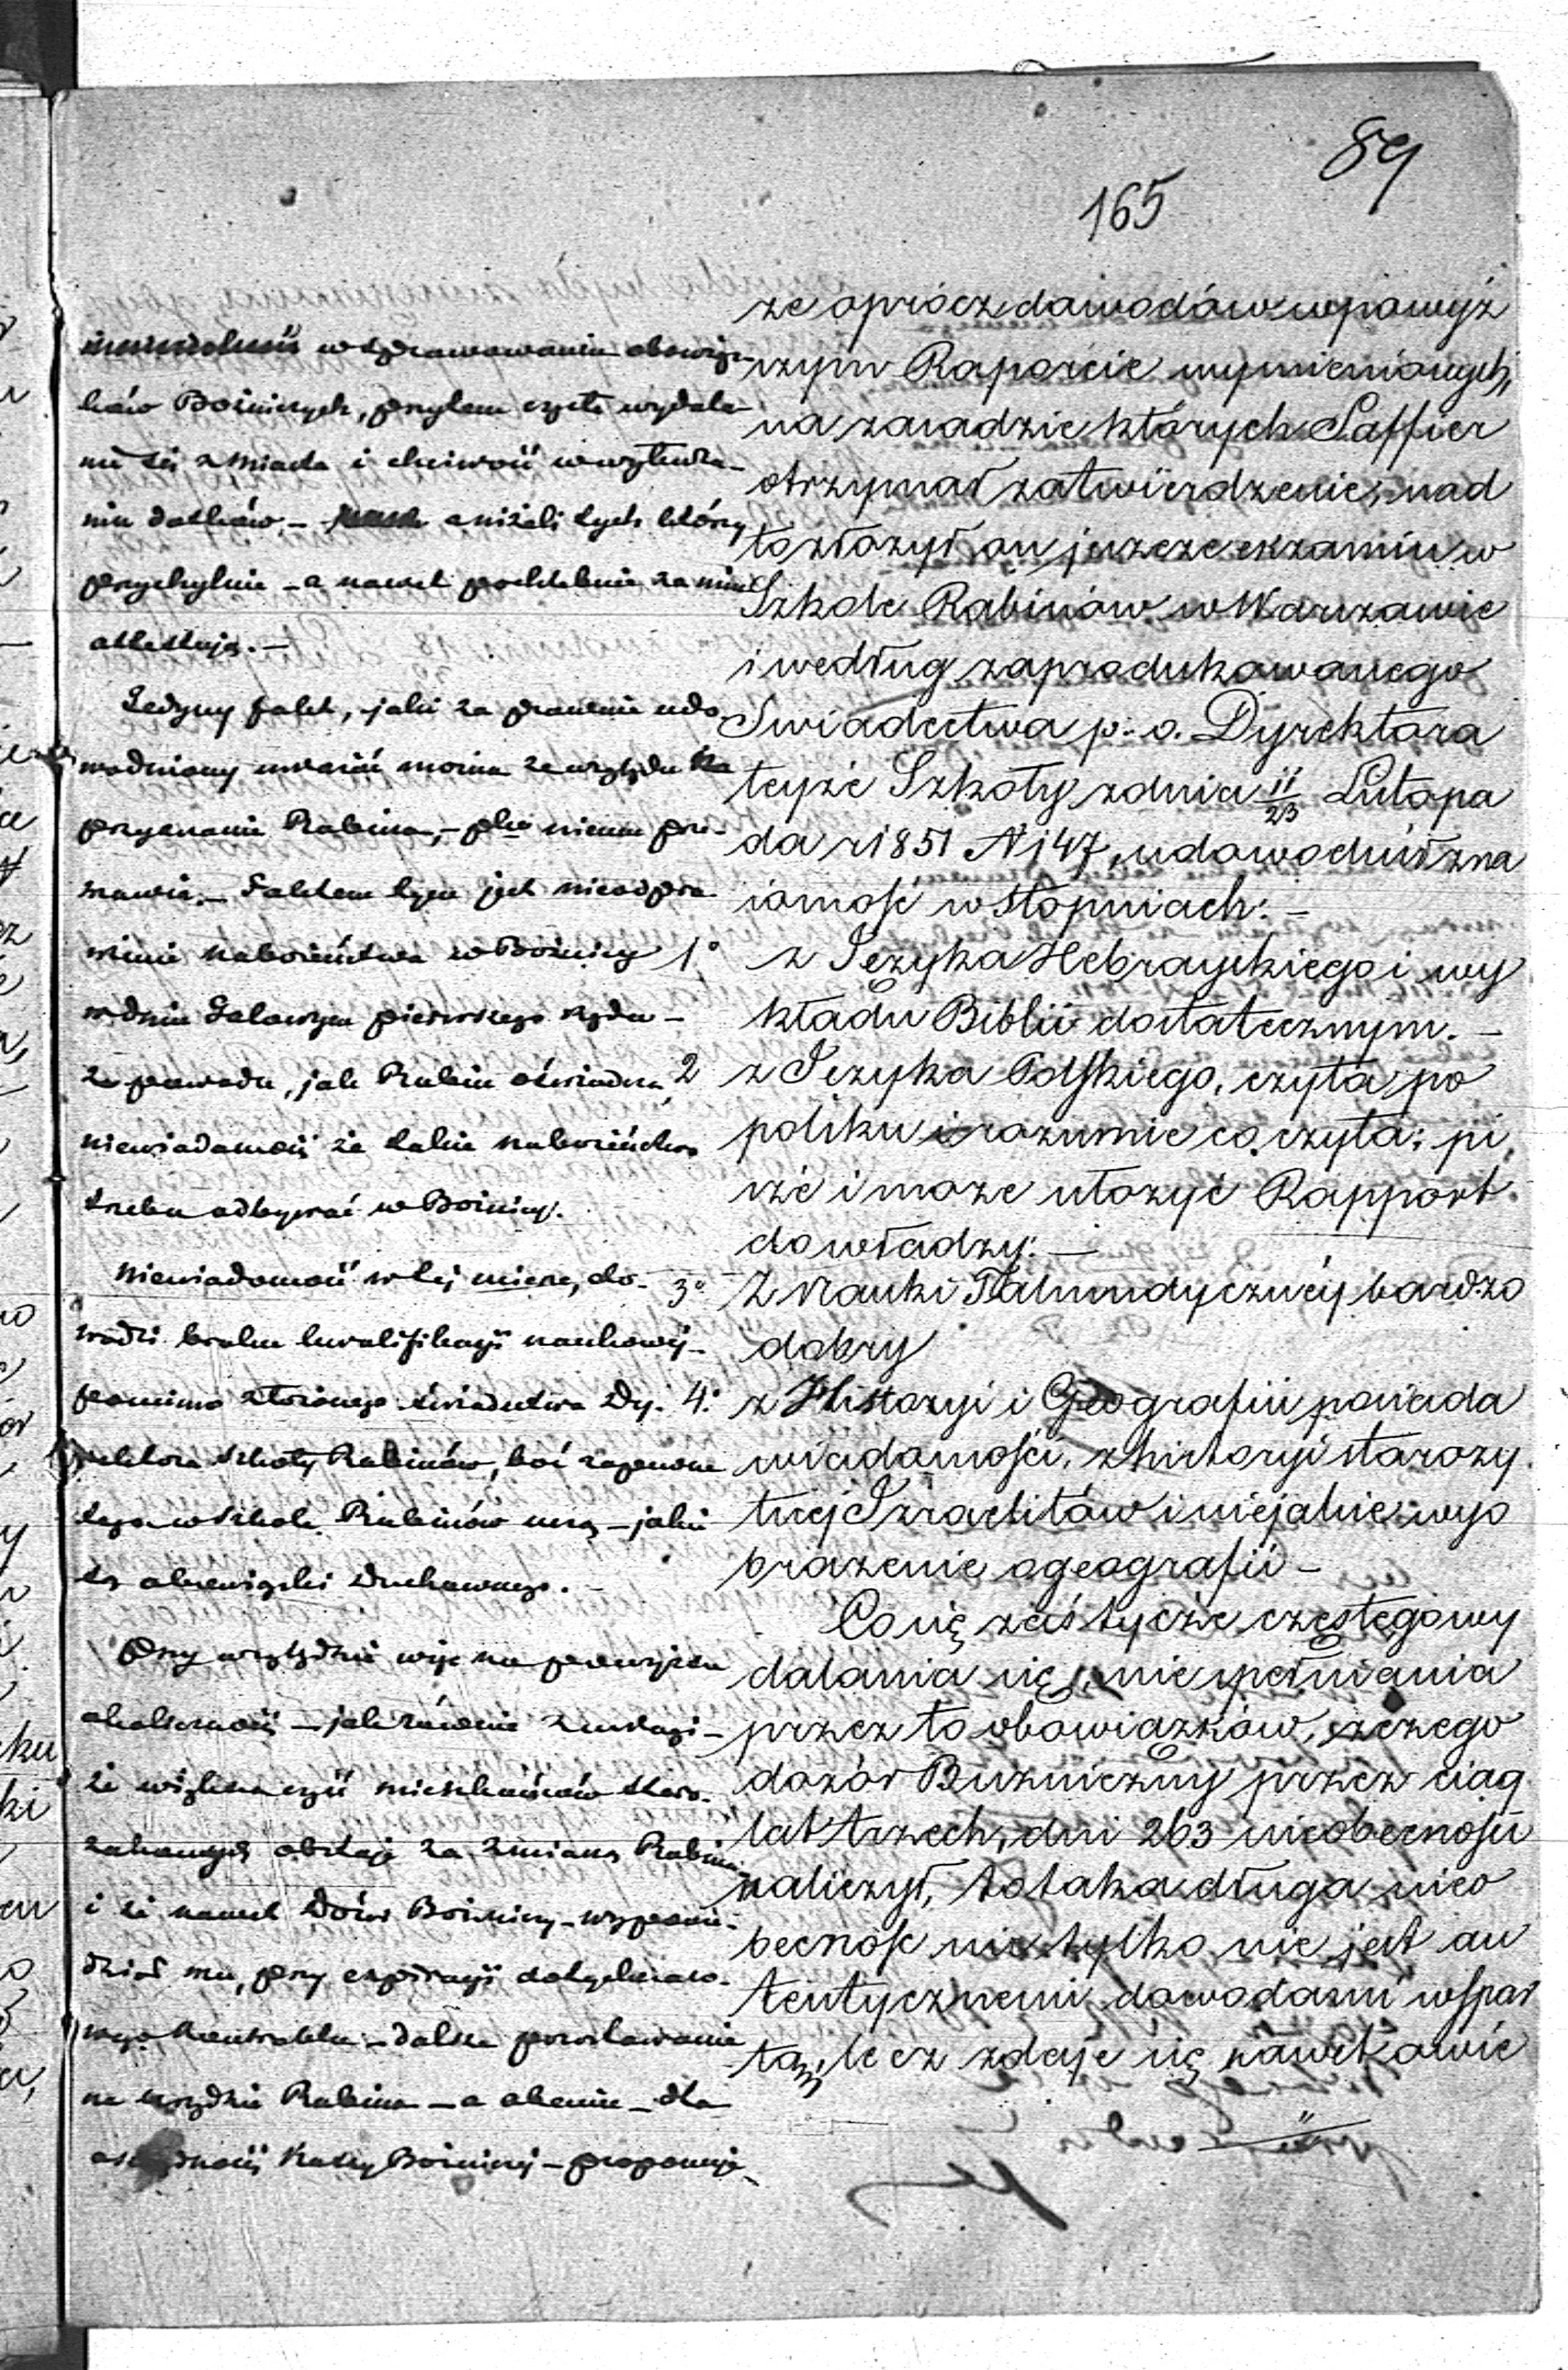 89
165
w sprawowaniu obowiąz-
ków Bożniczych, przytem częste wydala-
nie się z miasta i chciwość w wyciska-
niu datków — aniżeli tych którzy
przychylnie — a nawet pochlebnie za nim
attestują. —
Jedyny fakt, jaki za prawnie udo
wodniony uważać można ze względu na
przyznanie Rabina, — przeciw niemu prze-
mawia. — Faktem tym jest nieodpra
wienie nabożeństwa w Bożnicy
w dniu Galowym pierwszego rzędu —
z powodu, jak Rabin oświadcza,
niewiadomości że takie nabożeństwo
trzeba odbywać w Bożnicy.
Niewiadomość w tej mierze, do-
wodzi braku kwalifikacyi naukowej —
pomimo złożonego świadectwa Dy-
rektora Szkoły Rabinów, boć zapewne
tego w szkole Rabinów uczą — jakie
są obowiązki Duchownego. —
Przy względzie więc na powyższe
okoliczności — jak również z uwagi —
że większa część mieszkańców staro-
zakonnych obstaje za zmianą Rabina
i że nawet Dozór Bożniczy — wypowie-
dział mu, przy expiracyi dotychczaso-
wego Kontraktu — dalsze pozostawanie
na urzędzie Rabina — a obecnie — dla
Kassy Bożniczej — proponuje
że oprócz dowodów w powyż
szym Raporcie wymienionych,
na zasadzie których Saffier
otrzymał zatwierdzenie, nad
to złożył on jeszcze exzamin w
Szkole Rabinów w Warszawie
i według zaprodukowanego
Swiadectwa p. o. Dyrektora
teyże Szkoły z dnia 11/23 Listopa
da r 1851 N 147, udowodnił zna
iomość w stopniach: —
1° z Języka Hebrayskiego i wy
kładu Biblii dostatecznym. —
2 z Języka Polskiego, czyta po
polsku i rozumie co czyta; pi
sze i może ułożyć Rapport
do władzy: —
3° Z Nauki Talmudyczney bardzo
dobry
4° z Historyi i Geografii posiada
wiadomości, z historyi staroży
tnej Izraelitów i niejakie wyo
brażenie o geografii —
Co się zaś tycze częstego wy
dalania się, i nie spełniania
przez to obowiązków, z czego
dozór Bużniczny przez ciąg
lat trzech, dni 263 nieobecności
naliczył, to taka długa nieo
becność nie tylko nie jest au
tentycznemi dowodami wspar
tą, lecz zdaje się nawet owie